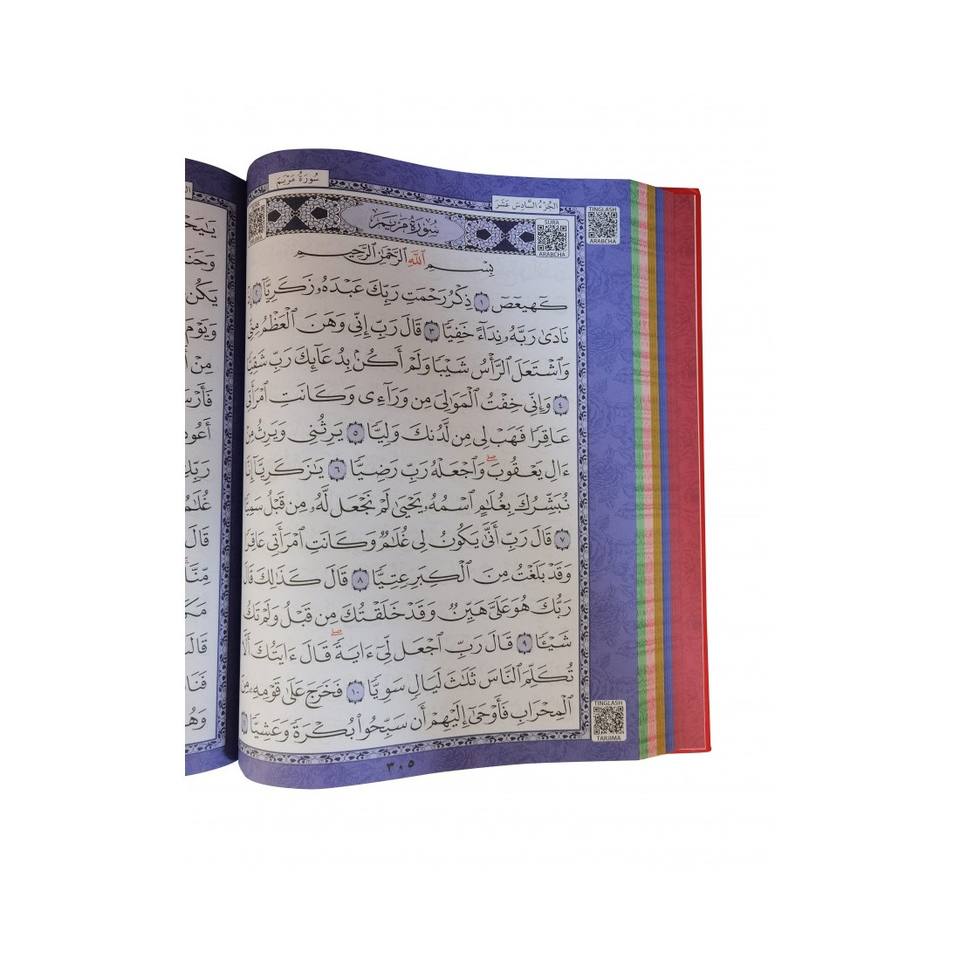 سُورَةُ مَرْيَمَ
الجُزْءُ السَّادِسَ عَشَرَ
TINGLASH
ARABCHA
سُورَةُ مَرْيَمَ
SURA
ARABCHA
بِسْمِ ٱللَّهِ ٱلرَّحْمَٰنِ ٱلرَّحِيمِ
كٓهيعٓصٓ ١ ذِكْرُ رَحْمَتِ رَبِّكَ عَبْدَهُۥ زَكَرِيَّآ ٢
نَادَىٰ رَبَّهُۥ نِدَآءً خَفِيًّا ٣ قَالَ رَبِّ إِنِّي وَهَنَ ٱلْعَظْمُ مِنِّي
وَٱشْتَعَلَ ٱلرَّأْسُ شَيْبًا وَلَمْ أَكُنۢ بِدُعَآئِكَ رَبِّ شَقِيًّا
٤ وَإِنِّي خِفْتُ ٱلْمَوَٰلِيَ مِن وَرَآءِي وَكَانَتِ ٱمْرَأَتِي
عَاقِرًا فَهَبْ لِي مِن لَّدُنكَ وَلِيًّا ٥ يَرِثُنِي وَيَرِثُ مِنْ
ءَالِ يَعْقُوبَ ۖ وَٱجْعَلْهُ رَبِّ رَضِيًّا ٦ يَٰزَكَرِيَّآ إِنَّا
نُبَشِّرُكَ بِغُلَٰمٍ ٱسْمُهُۥ يَحْيَىٰ لَمْ نَجْعَل لَّهُۥ مِن قَبْلُ سَمِيًّا
٧ قَالَ رَبِّ أَنَّىٰ يَكُونُ لِي غُلَٰمٌ وَكَانَتِ ٱمْرَأَتِي عَاقِرًا
وَقَدْ بَلَغْتُ مِنَ ٱلْكِبَرِ عِتِيًّا ٨ قَالَ كَذَٰلِكَ قَالَ
رَبُّكَ هُوَ عَلَيَّ هَيِّنٌ وَقَدْ خَلَقْتُكَ مِن قَبْلُ وَلَمْ تَكُ
شَيْـًٔا ٩ قَالَ رَبِّ ٱجْعَل لِّيٓ ءَايَةً ۚ قَالَ ءَايَتُكَ أَلَّا
تُكَلِّمَ ٱلنَّاسَ ثَلَٰثَ لَيَالٍ سَوِيًّا ١٠ فَخَرَجَ عَلَىٰ قَوْمِهِۦ مِنَ
ٱلْمِحْرَابِ فَأَوْحَىٰٓ إِلَيْهِمْ أَن سَبِّحُوا۟ بُكْرَةً وَعَشِيًّا
TINGLASH
TARJIMA
٣٠٥